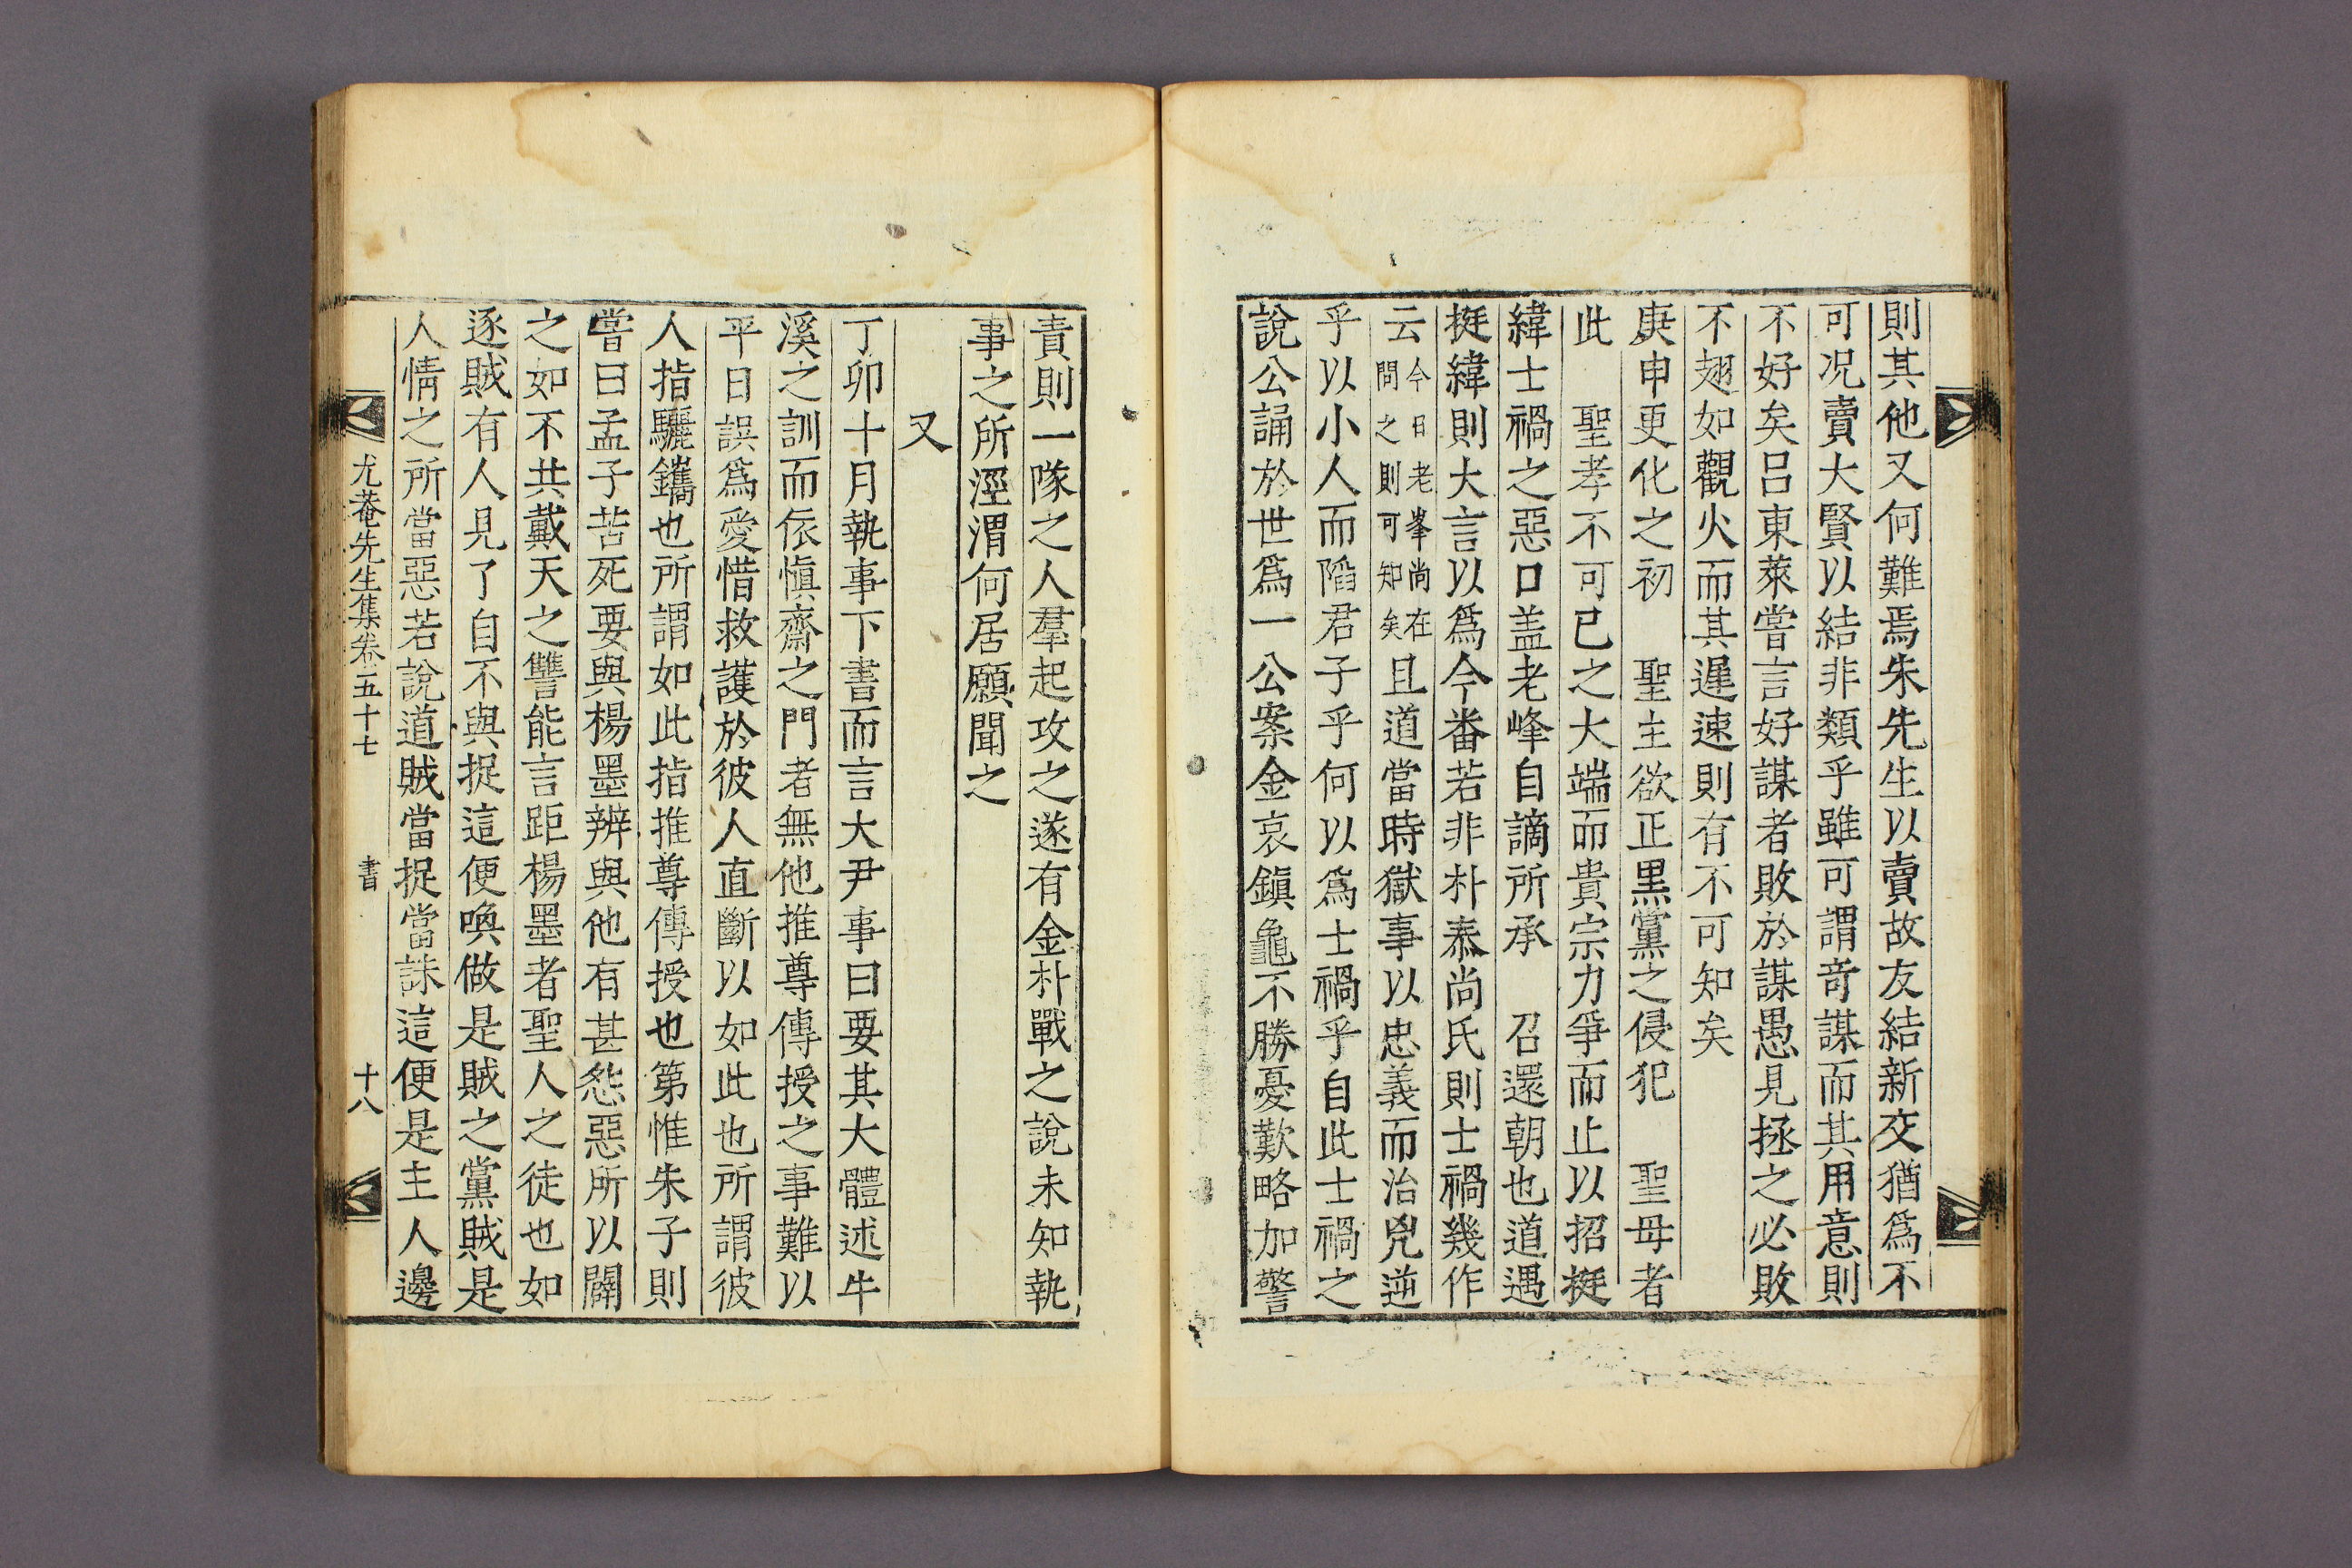 則其他又何難焉朱先生以賣故友結新交猶爲不
可况賣大賢以結非類乎雖可謂奇謀而其用意則
不好矣呂東萊嘗言好謀者敗於謀愚見拯之必敗
不翅如觀火而其遲速則有不可知矣
庚申更化之初 聖主欲正黑黨之侵犯 聖母者
此 聖孝不可已之大端而貴宗力爭而止以招挺
緯士禍之惡口盖老峰自謫所承 召還朝也道遇
挺緯則大言以爲今番若非朴泰尚氏則士禍幾作
云今日老峯尚在問之則可知矣且道當時獄事以忠義而治兇逆
乎以小人而陷君子乎何以爲士禍乎自此士禍之
說公誦於世爲一公案金哀鎭龜不勝憂歎略加警
責則一隊之人羣起攻之遂有金朴戰之說未知執
事之所涇渭何居願聞之
又
丁卯十月執事下書而言大尹事曰要其大體述牛
溪之訓而依愼齋之門者無他推尊傳授之事難以
平日誤爲愛惜救護於彼人直斷以如此也所謂彼
人指驪鑴也所謂如此指推尊傳授也第惟朱子則
嘗曰孟子苦死要與楊墨辨與他有甚怨惡所以闢
之如不共戴天之讐能言距楊墨者聖人之徒也如
逐賊有人見了自不與捉這便喚做是賊之黨賊是
人情之所當惡若說道賊當捉當誅這便是主人邊
尤菴先生集卷五十七 書 十八